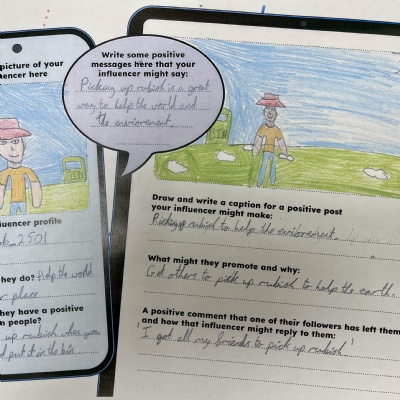 picture of your
encer here
uencer profile
2501
they do? Help the world
place
they have a positive
n people?
up rubish when you
put it in the bin
Write some positive
messages here that your
influencer might say:
Picking up rubish is a great
way to help the world and
the enviorement.
Draw and write a caption for a positive post
your influencer might make:
Picking up rubish to help the enviorement.
What might they promote and why:
Get others to pick up rubish to help the earth.
A positive comment that one of their followers has left them
and how that influencer might reply to them:
'I got all my friends to pick up rubish'